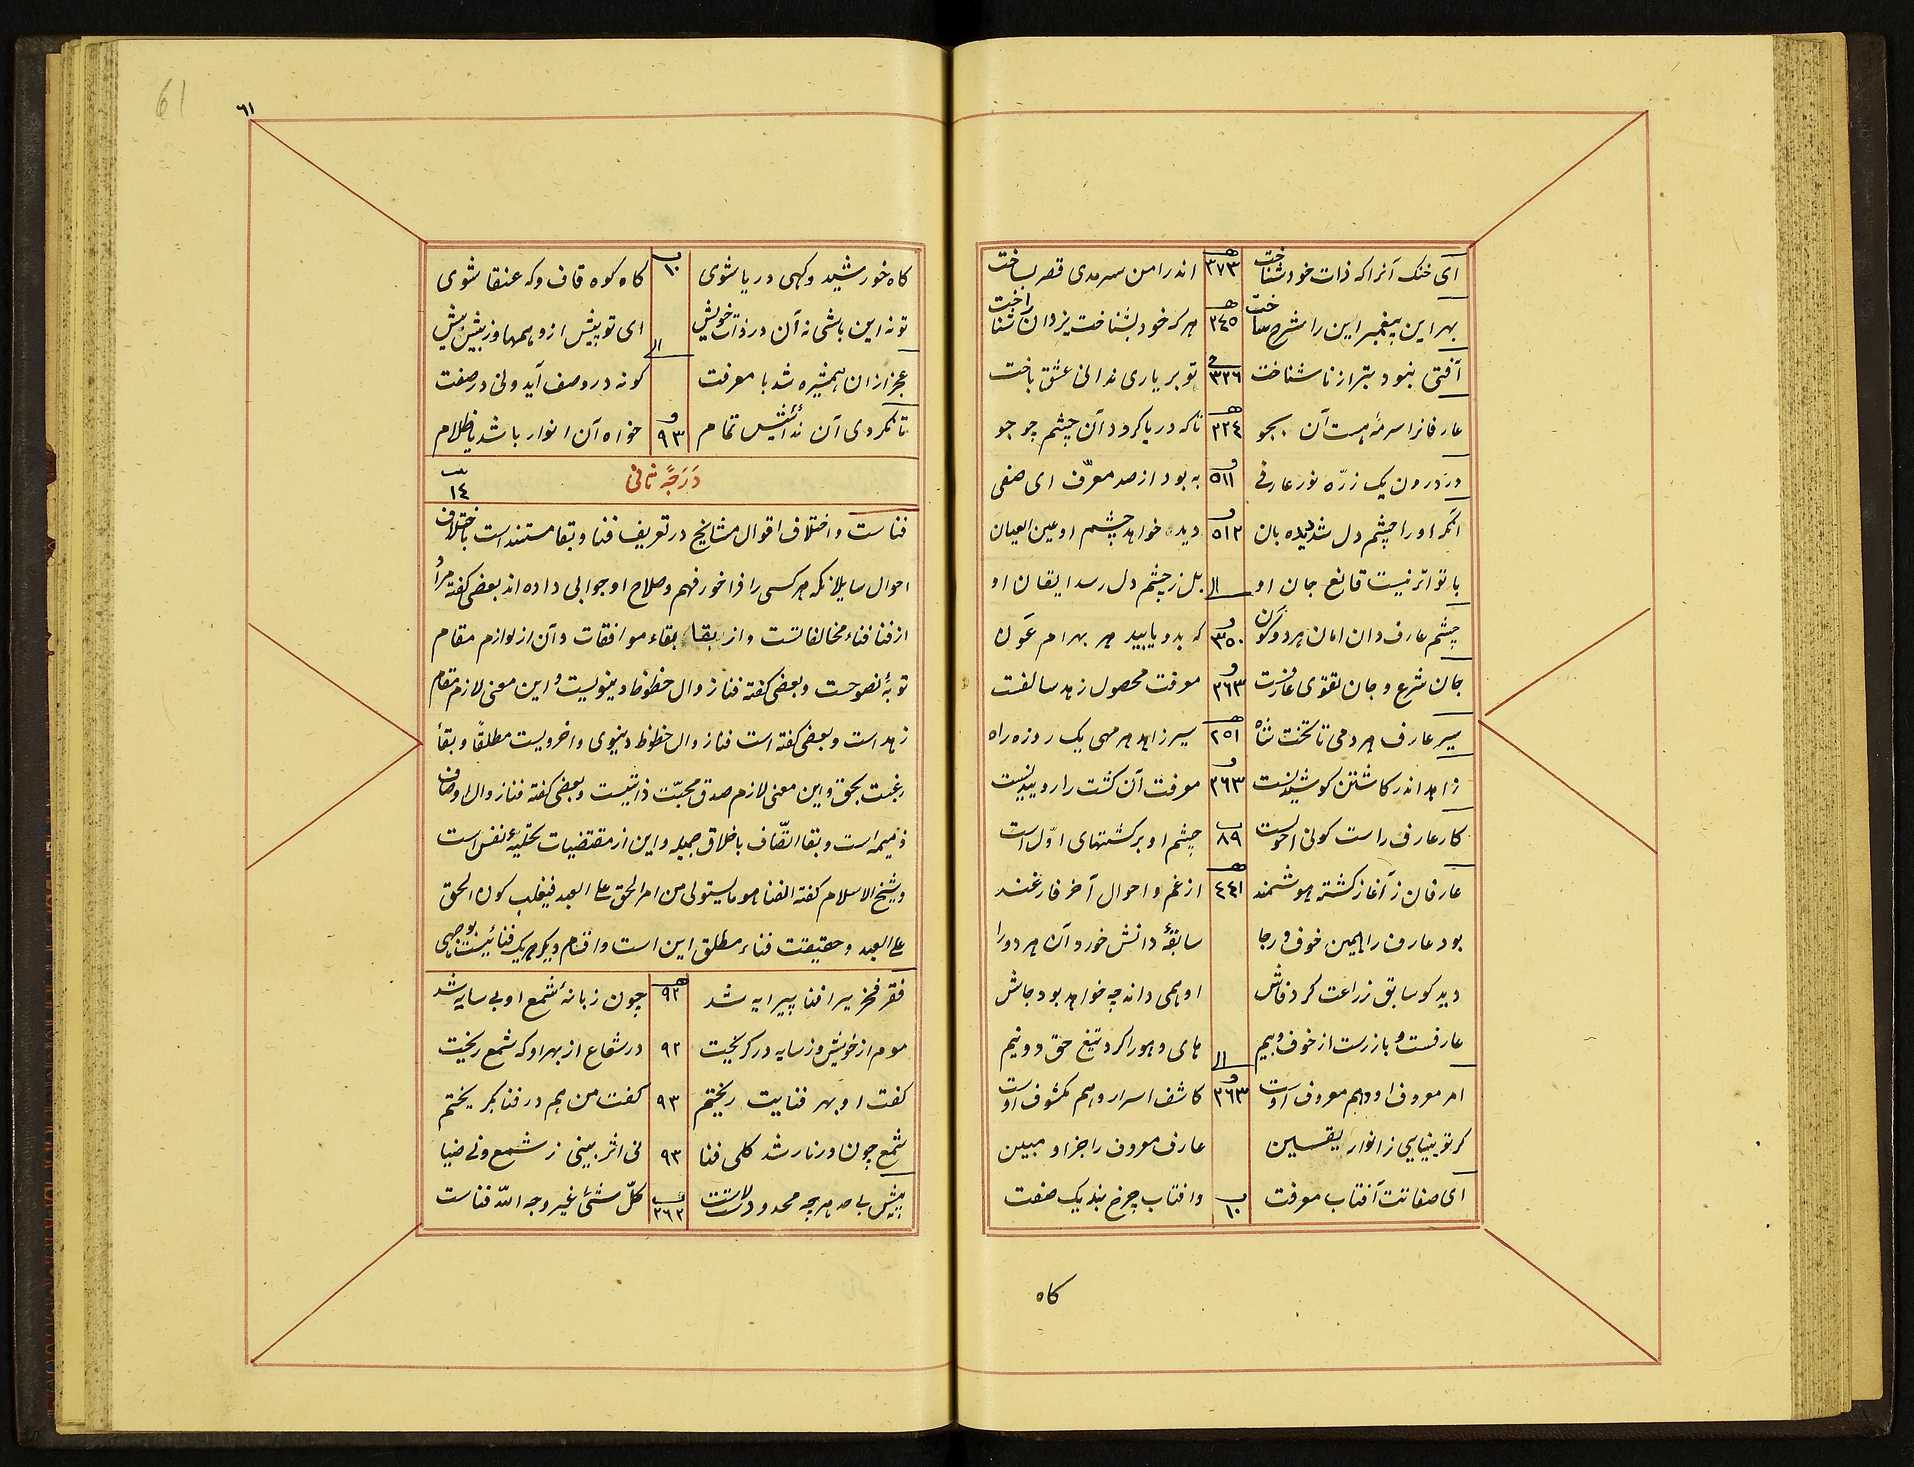 ای خنک آنرا که ذات خود شناخت ۳۷۳ اندر امن سرمدی قصر بساخت
بهر این پیغمبر این را شرح ساخت ۳٤٥ هر که خود بشناخت یزدان را شناخت
آفتی نبود بتر از ناشناخت ۳۲٦ تو بر یاری ندانی عشق باخت
عارفانرا سرمهٔ هست آن بجو ۲۲٤ تا که دریا کردد آن چشم چو جو
در درون یک زرّه نور عارفی ٥١١ به بود از صد معرّف ای صفی
انکه او را چشم دل شد دیده بان ٥١٢ دیده خواهد چشم او عین العیان
با تواتر نیست قانع جان او بل ز چشم دل رسد ایقان او
چشم عارف دان امان هر دو کون ۳٥۰ که بدو یابید هر بهرام عون
جان شرع و جان تقوی عارفست ۳٦۳ معرفت محصول زهد سالفست
سیر عارف هر دمی تا تخت شاه ۲٥١ سیر زاهد هر مهی یک روزه راه
زاهد اندر کاشتن کوشیدنست ۳٦۳ معرفت آن کشت را روییدنست
کار عارف راست کونی احولست ۸۹ چشم او بر کشتهای اوّل است
عارفان ز آغاز کشته هوشمند ٤٤١ از غم و احوال آخر فارغند
بود عارف را همین خوف و رجا سابقهٔ دانش خورد آن هر دو را
دید کو سابق زراعت کرد فاش او همی داند چه خواهد بود جاش
عارفست و باز رست از خوف و بیم های و هو را کرد تیغ حق دو نیم
امر معروف او و هم معروف اوست ۳٦۳ کاشف اسرار و هم مکشوف اوست
کر تو بینایی ز انوار یقین عارف معروف را جز او مبین
ای صفاتت آفتاب معرفت ١۰ وافتاب چرخ بند یک صفت
کاه
٦١
61
کاه خورشید و کهی دریا شوی ١۰ کاه کوه قاف و که عنقا شوی
تو نه این باشی نه آن در ذات خویش ای تو بیش از وهمها وز بیش بیش
عجز ازان همشیره شد با معرفت کو نه در وصف آید و نی در صفت
تا نکردی آن ندانیش تمام ۹۳ خواه آن انوار باشد یا ظلام
دَرَجَهٔ ثانی ١٤
فناست و اختلاف اقوال مشایخ در تعریف فنا و بقا مستند است باختلاف
احوال سایلانکه هر کسی را فراخور فهم و صلاح او جوابی داده اند بعضی کفته مراد
از فنا فناء مخالفاتست و از بقا بقاء موافقات و آن از لوازم مقام
توبهٔ نصوحست و بعضی کفته فنا زوال حظوظ دینویست و این معنی لازم مقام
زهد است و بعضی کفته است فنا زوال حظوظ دنیوی و اخرویست مطلقاً و بقا
رغبت بحق و این معنی لازم صدق محبّت ذاتیست و بعضی کفته فنا زوال اوصاف
ذمیمه است و بقا اتّصاف باخلاق جمیله و این از مقتضیات تخلیهٔ نفس است
و شیخ الاسلام کفته الفنا هو ما یستولی من امر الحق علی العبد فیغلب کون الحق
علی العبد و حقیقت فناء مطلق این است و اقسام دیکر هر یک فنائیست بوجهی
فقر فخری را فنا پیرایه شد ۹۲ چون زبانهٔ شمع او بی سایه شد
موم از خویش و ز سایه در کریخت ۹۲ در شعاع از بهر او که شمع ریخت
کفت او بهر فنایت ریختم ۹۳ کفت من هم در فنا بکریختم
شمع چون در نار شد کلی فنا ۹۳ نی اثر بینی ز شمع و نی ضیا
پیش بی حد هر چه محدود لاست ۲٦۲ کلّ شئ غیر وجه اللّه فناست